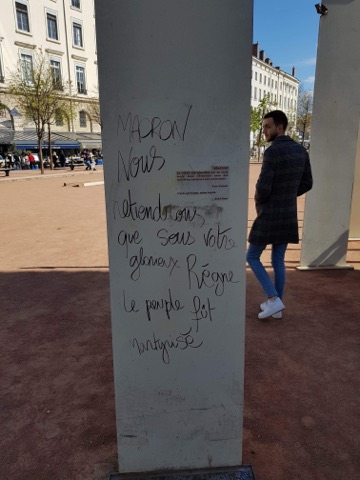 MACRON
Nous
retiendrons
que sous votre
glorieux Règne
le peuple fût
martyrisé